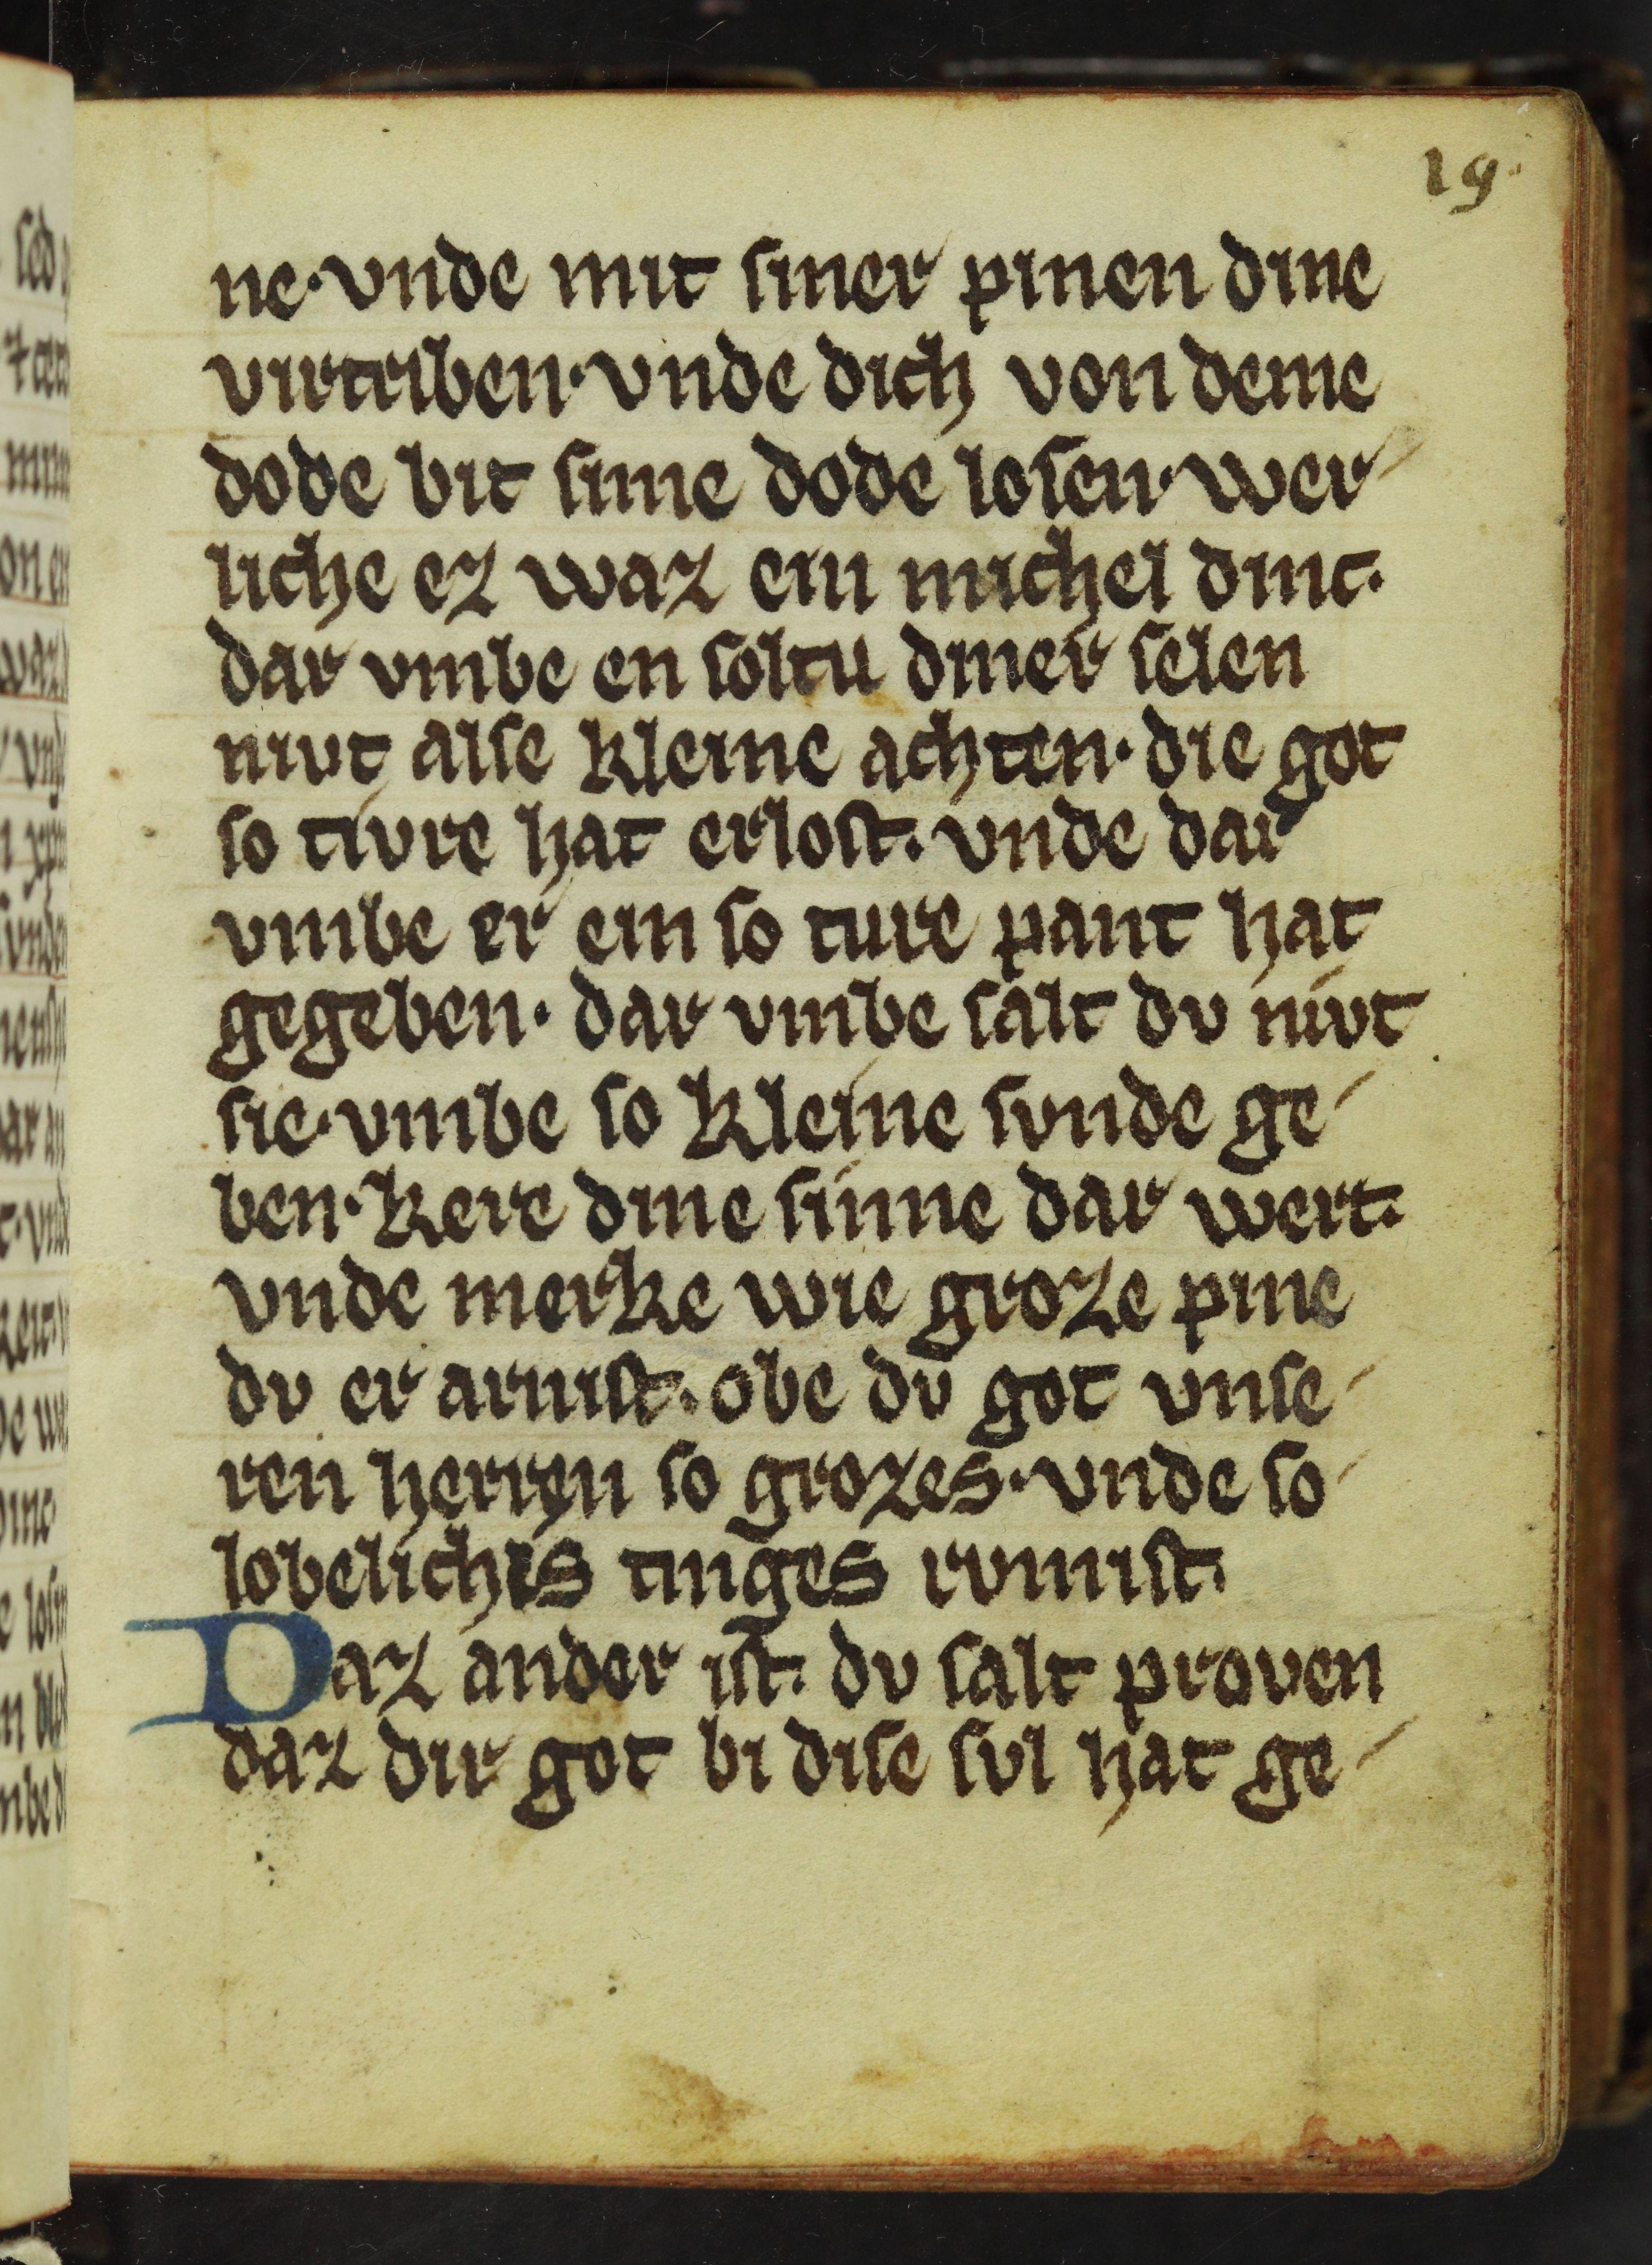 19.
ne·vnde mit siner pinen dine
virtriben·vnde dich von deme
dode bit sime dode losen·wer
liche ez waz ein michel dinc.
dar vmbe en soltu diner selen
nivt alse kleine achten·die got
so tivre hat erlost.vnde dar
vmbe er ein so ture pant hat
gegeben·dar vmbe salt dv nivt
sie·vmbe so kleine svnde ge
ben·kere dine sinne dar wert.
vnde merke wie groze pine
dv er arnist.obe dv got vnse
ren herren so grozes·vnde so
lobelichis tinges rvmist.
Daz ander ist.dv salt proven
daz dir got bi dise svl hat ge